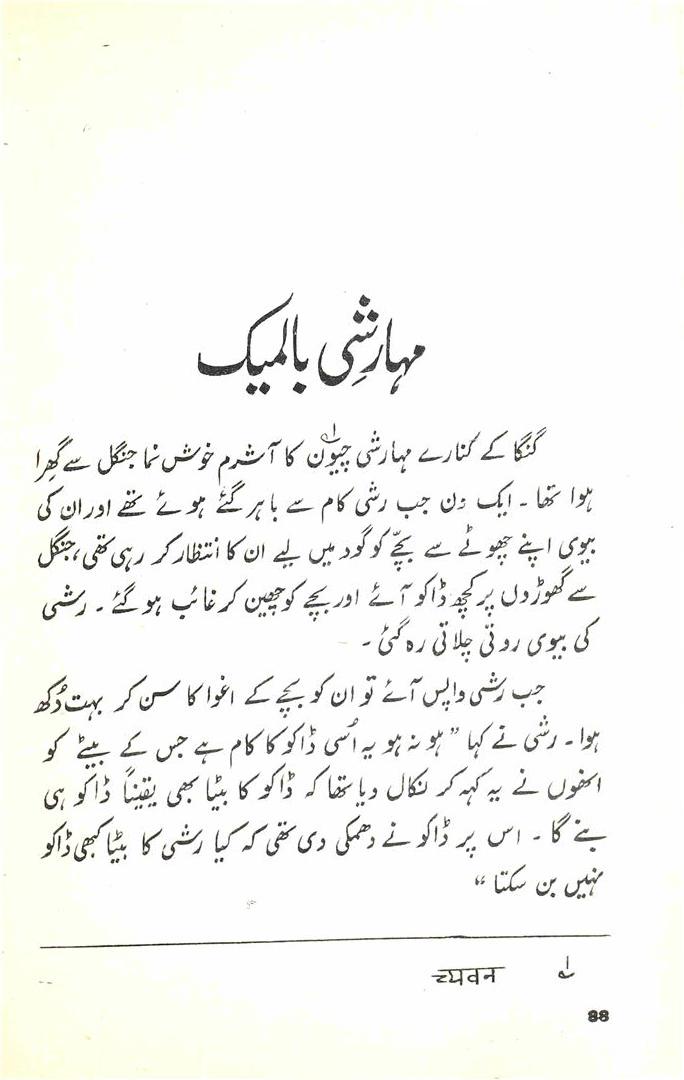 مہارشِی بالمیک
گنگا کے کنارے مہارشی چیون؂۱ کا آشرم خوش نما جنگل سے گھِرا
ہوا تھا ۔ ایک دن جب رشی کام سے باہر گئے ہوئے تھے اور ان کی
بیوی اپنے چھوٹے سے بچّے کو گود میں لیے ان کا انتظار کر رہی تھی، جنگل
سے گھوڑوں پر کچھ ڈاکو آئے اور بچے کو چھین کر غائب ہو گئے ۔ رشی
کی بیوی روتی چلاتی رہ گئی ۔
جب رشی واپس آئے تو ان کو بچے کے اغوا کا سن کر بہت دُکھ
ہوا ۔ رشی نے کہا " ہو نہ ہو یہ اُسی ڈاکو کا کام ہے جس کے بیٹے کو
انھوں نے یہ کہہ کر نکال دیا تھا کہ ڈاکو کا بیٹا بھی یقیناً ڈاکو ہی
بنے گا ۔ اس پر ڈاکو نے دھمکی دی تھی کہ کیا رشی کا بیٹا کبھی ڈاکو
نہیں بن سکتا "
؂۱ च्यवन
88